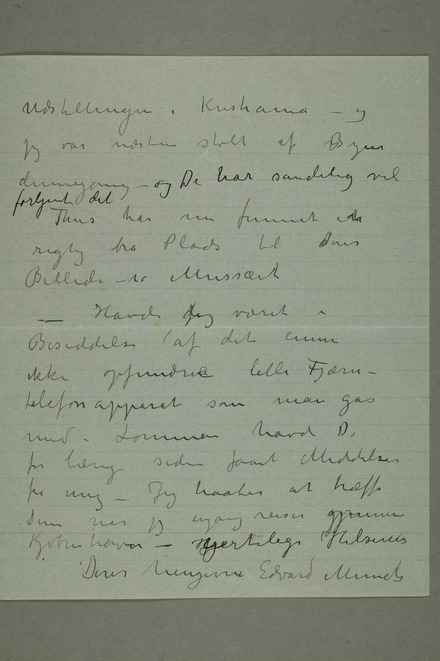 Udstillingen i Kristiania – og
jeg var næsten stolt af Byen
– og De har sandelig vel
fortjent det
Thiis har nu funnet en
rigtig bra Plads til Deres
Billede – i Musæet
— Havde jeg været i
Besiddelse af det ennu
ikke opfundne lille Fjern-
telefonapparat som man
med i Lommen havde De
for længe siden faaet Meddelelse
fra mig – Jeg haaber at træffe
Dem når jeg engang reiser gjennem
Kjøbenhavn – Hjertelige Hilsener
Deres hengivne Edvard Munch